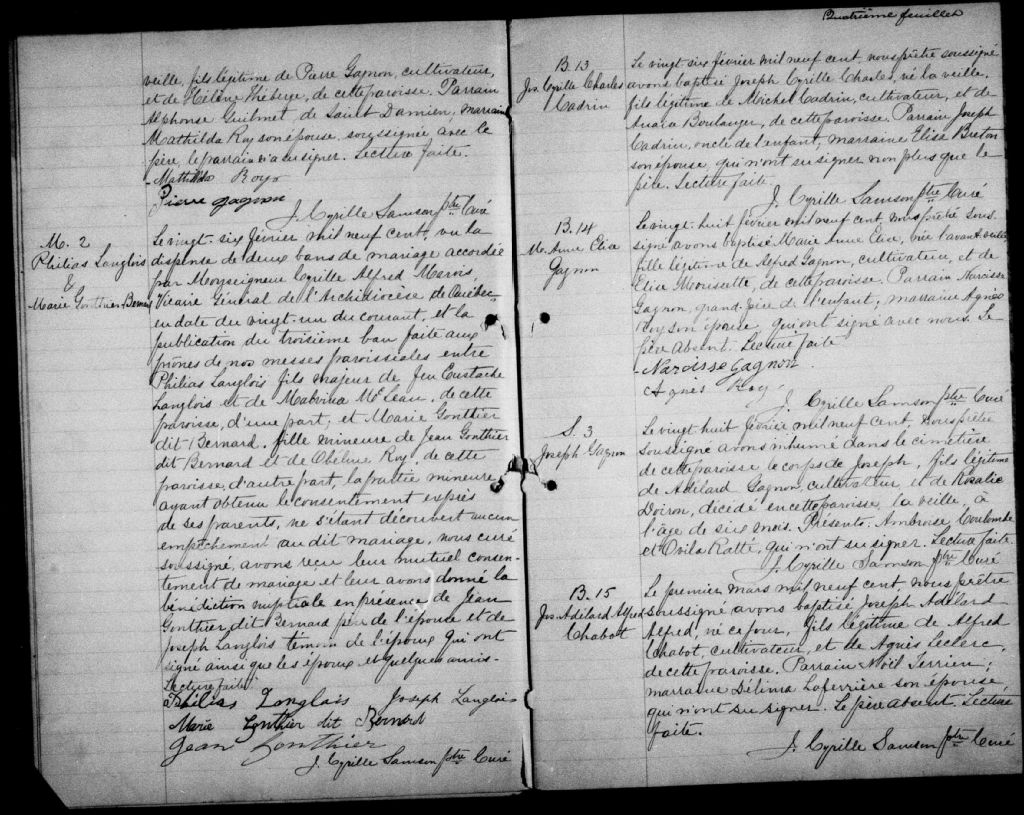 veille, fils légitime de Pierre Gagnon, cultivateur,
et de Hélène Théberge, de cette paroisse. Parrain
Alphonse Guilmet de Saint Damien, marraine
Mathilda Roy son épouse, soussignée avec le
père, le parrain n'a su signer. Lecture faite.
Mathilda Roy
Pierre Gagnon
J. Cyrille Samson ptre Curé
M. 2
Philias Langlois
&
Marie Gonthier Bernard
Le vingt-six février mil neuf cent, vu la
dispense de deux bans de mariage accordée
par Monseigneur Cyrille Alfred Marois,
Vicaire Général de l'Archidiocèse de Québec,
en date du vingt-un du courant, et la
publication du troisième ban faite aux
prônes de nos messes paroissiales entre
Philias Langlois fils majeur de feu Eustache
Langlois et de Malvina McLean, de cette
paroisse, d'une part; et Marie Gonthier
dit Bernard, fille mineure de Jean Gonthier
dit Bernard et de Obéline Roy, de cette
paroisse, d'autre part, la partie mineure
ayant obtenu le consentement exprès
de ses parents, ne s'étant découvert aucun
empêchement au dit mariage, nous curé
soussigné, avons reçu leur mutuel consen-
tement de mariage et leur avons donné la
bénédiction nuptiale en présence de Jean
Gonthier dit Bernard père de l'épouse et de
Joseph Langlois témoin de l'époux qui ont
signé ainsi que les époux et quelques amis-
Lecture faite.
Philias Langlois Joseph Langlois
Marie Gonthier dit Bernard
Jean Gonthier
J. Cyrille Samson ptre Curé
Quatrième feuillet
B. 13
Jos. Cyrille Charles
Cadrin
Le vingt six février mil neuf cent, nous prêtre soussigné
avons baptisé Joseph Cyrille Charles, né la veille,
fils légitime de Michel Cadrin, cultivateur, et de
Boulanger, de cette paroisse. Parrain Joseph
Cadrin, oncle de l'enfant, marraine Elisa Breton
son épouse, qui n'ont su signer non plus que le
père. Lecture faite
J. Cyrille Samson ptre Curé
B. 14
M. Anne Eliza
Gagnon
Le vingt-huit février mil neuf cent nous prêtre sous-
signé avons baptisé Marie Anne Eliza, née l'avant-veille
fille légitime de Alfred Gagnon, cultivateur, et de
Eliza Morissette, de cette paroisse. Parrain Narcisse
Gagnon, grand-père de l'enfant, marraine Agnès
Roy son épouse, qui ont signé avec nous. Le
père absent. Lecture faite
Narcisse Gagnon
Agnès Roy
J. Cyrille Samson ptre Curé
S. 3
Joseph Gagnon
Le vingt huit février mil neuf cent, nous prêtre
soussigné avons inhumé dans le cimetière
de cette paroisse le corps de Joseph, fils légitime
de Adélard Gagnon, cultivateur, et de Rosalie
Doiron, décédé en cette paroisse la veille, à
l'âge de six mois. Présents: Ambroise Coulombe
et Ovila Ratté, qui n'ont su signer. Lecture faite.
J. Cyrille Samson ptre Curé
B. 15
Jos. Adélard Alfred
Chabot
Le premier mars mil neuf cent, nous prêtre
soussigné avons baptisé Joseph Adélard
Alfred, né ce jour, fils légitime de Alfred
Chabot, cultivateur, et de Agnès Leclerc,
de cette paroisse. Parrain Noël Terrien;
marraine Délima Laferrière son épouse
qui n'ont su signer. Le père absent. Lecture
faite.
J. Cyrille Samson ptre Curé